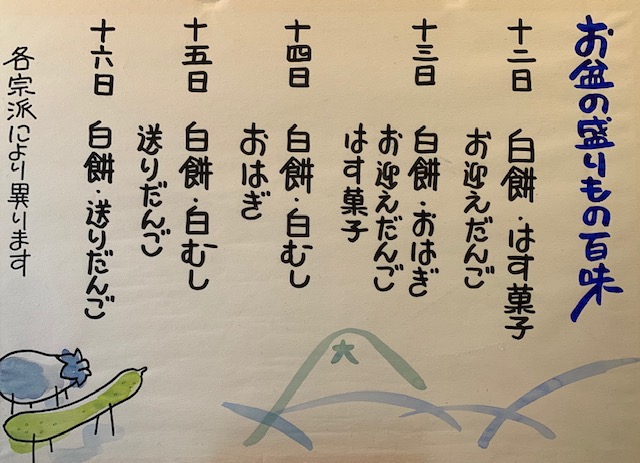 お盆の盛りもの百味
十二日 白餅・はす菓子
お迎えだんご
十三日 白餅・おはぎ
お迎えだんご
はす菓子
十四日 白餅・白むし
おはぎ
十五日 白餅・白むし
送りだんご
十六日 白餅・送りだんご
各宗派により異ります
大